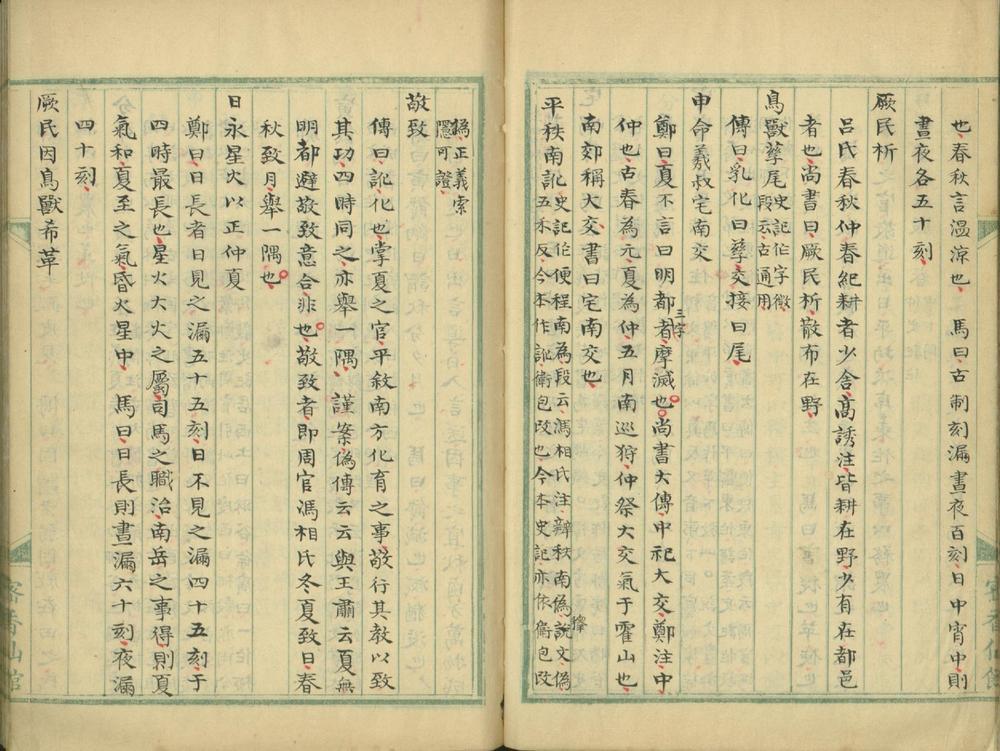 也春秋言温涼也 馬曰古制刻漏晝夜百刻日中宵中則
晝夜各五十刻
厥民析
呂氏春秋仲春紀耕者少舍高誘注皆耕在野少有在都邑
者也尚書曰厥民析散布在野
鳥獸孳尾史記作字微
段云古通用
傳曰乳化曰孳交接曰尾
申命羲叔宅南交
鄭曰夏不言曰明都三字者摩滅也尚書大傳中祀大交鄭注中
仲也古春為元夏為仲五月南巡狩仲祭大交氣于霍山也
南郊稱大交書曰宅南交也
平秩南訛史記作便程南為段云馮相氏注辯秩南偽說文偽
五禾反今本作訛衛包改也今本史記亦依衛包改
撝正義索
隱可證
敬致
傳曰訛化也掌夏之官平敘南方化育之事敬行其教以致
其功四時同之亦舉一隅謹案偽傳云云與王肅云夏無
明都避敬致意合非也敬致者即周官馮相氏冬夏致日春
秋致月舉一隅也
日永星火以正仲夏
鄭曰日長者日見之漏五十五刻日不見之漏四十五刻于
四時最長也星火大火之屬司馬之職治南岳之事得則夏
氣和夏至之氣昏火星中 馬曰日長則晝漏六十刻夜漏
四十刻
厥民因鳥獸希革